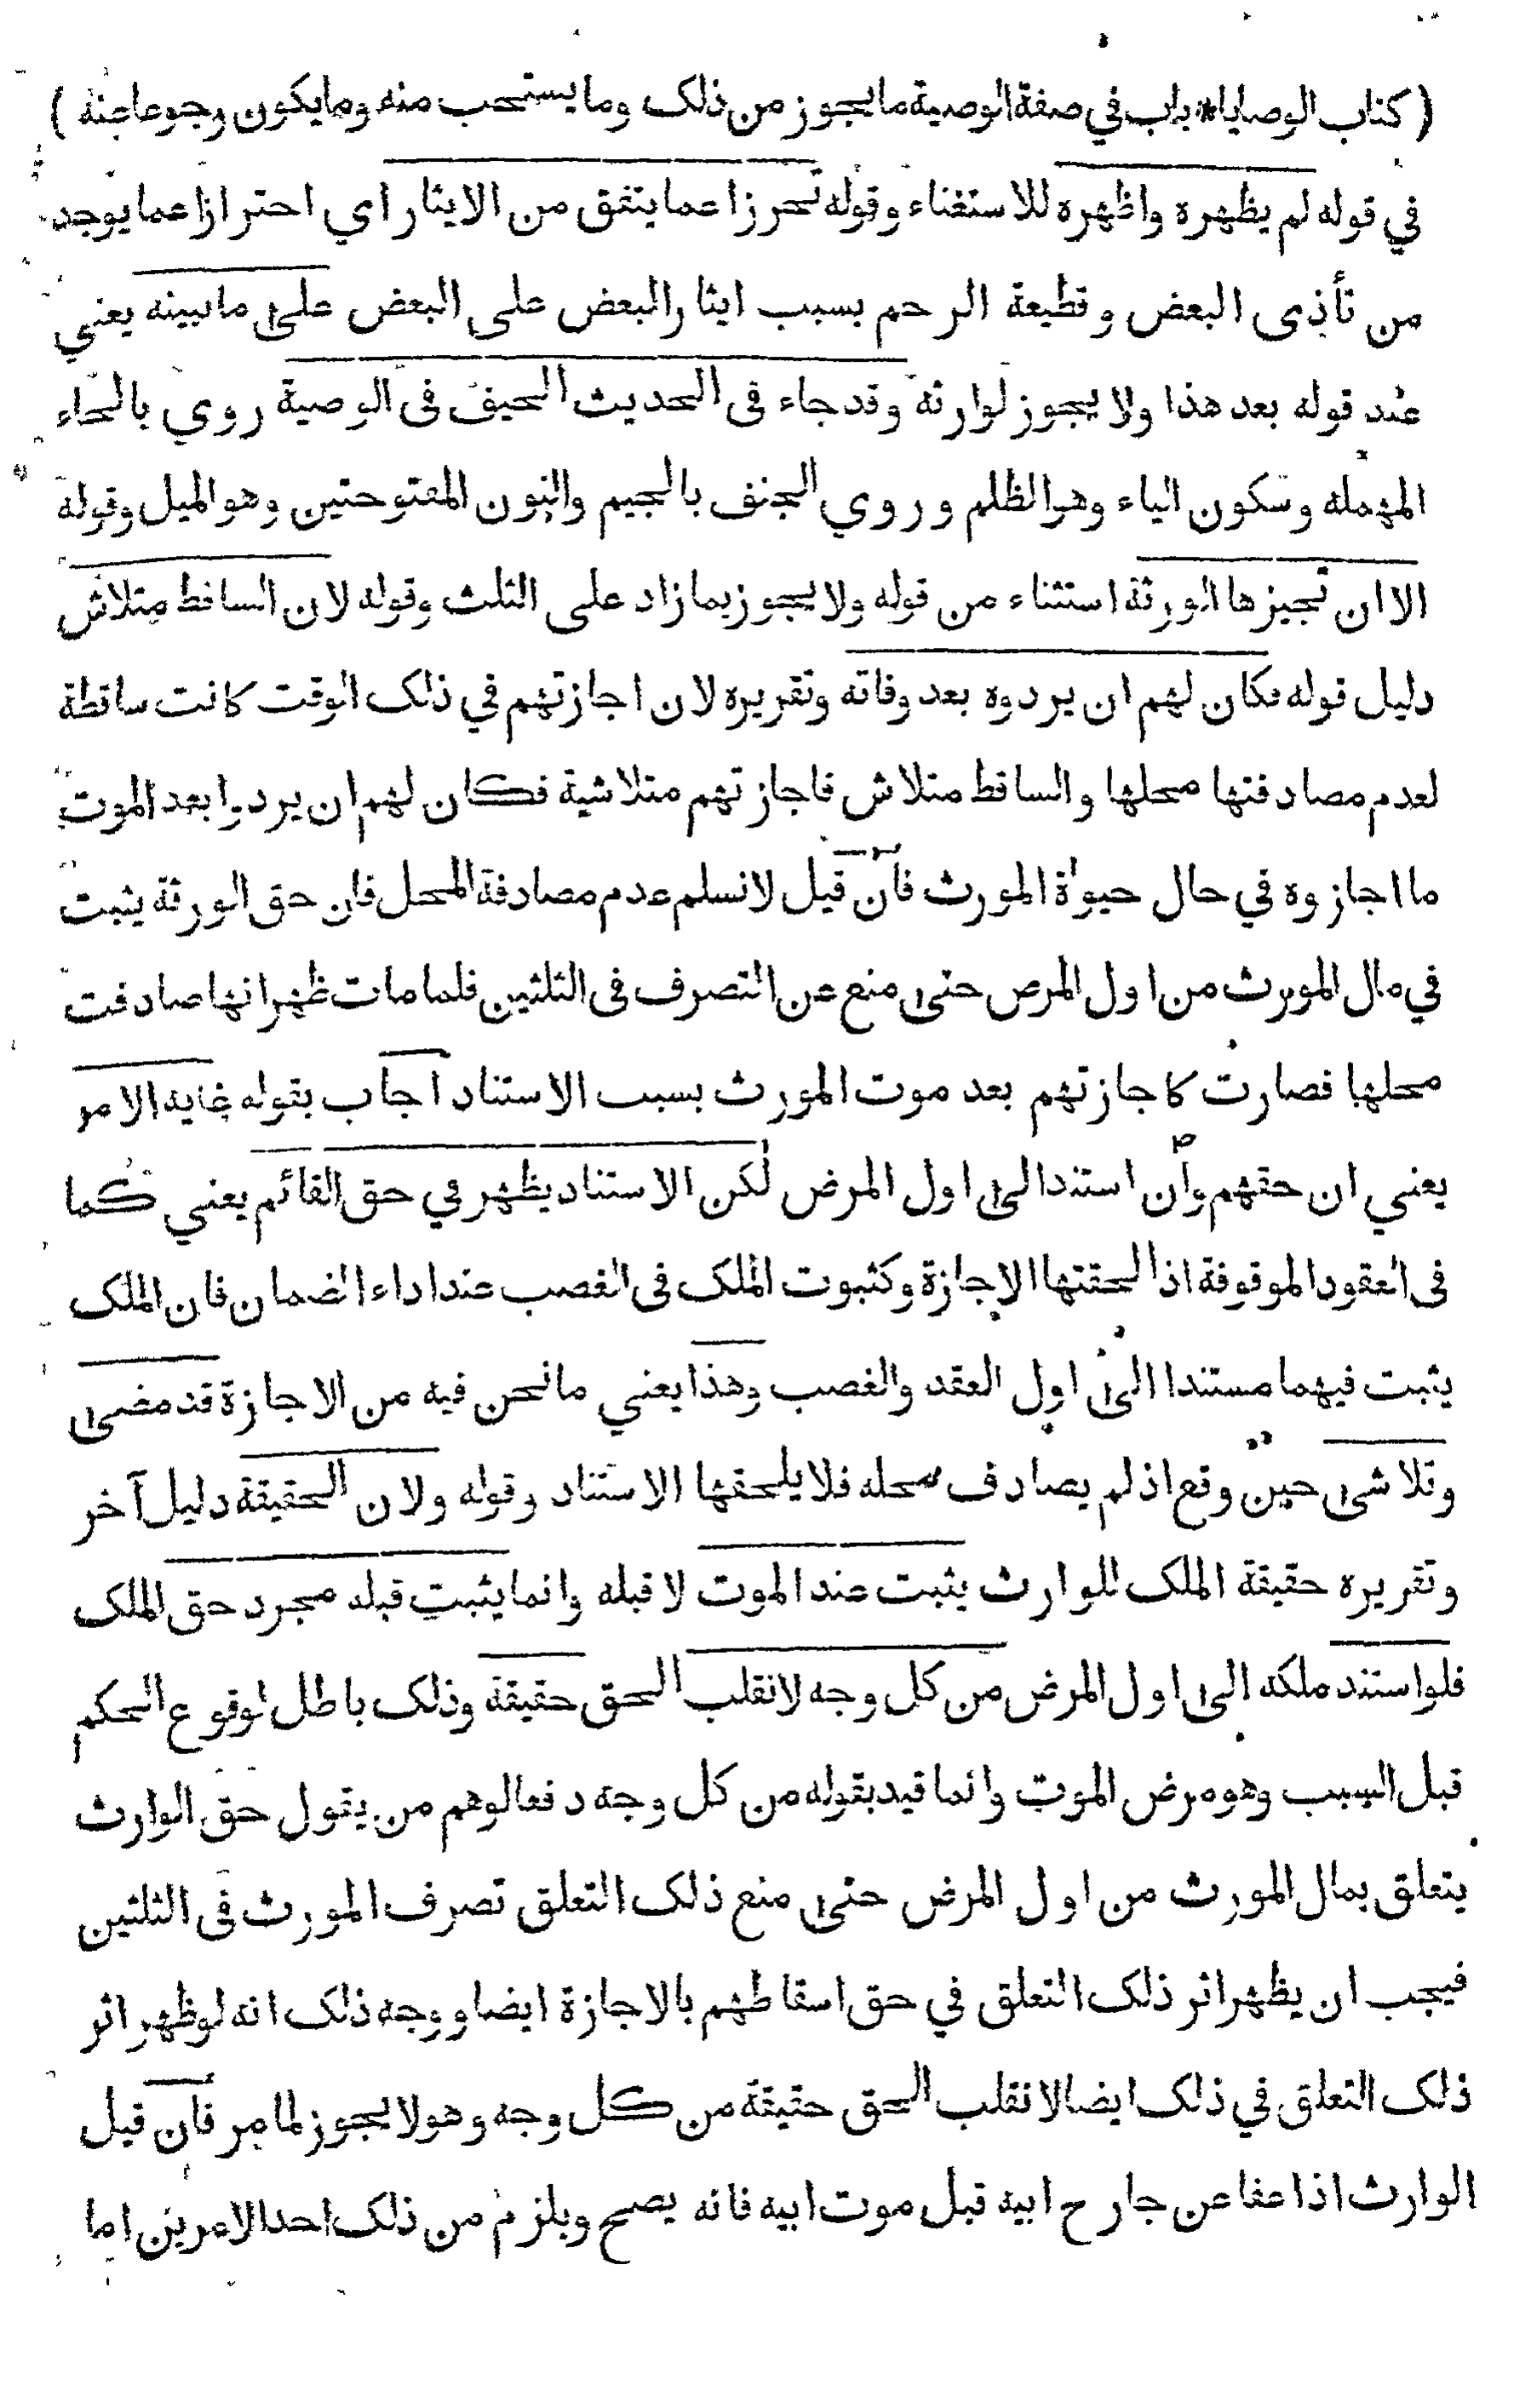 ( كتاب الوصايا * باب في صفة الوصية ما يجوز من ذلك وما يستحب منه وما يكون رجوعا عنه )
في قوله لم يظهره واظهره للاستغناء وقوله تحرزا عما يتفق من الايثار اي احترازا عما يوجد
من تأذى البعض وقطيعة الرحم بسبب ايثار البعض على البعض على ما نبينه يعني
عند قوله بعد هذا ولا يجوز لوارثه وقد جاء فى الحديث الحيف فى الوصية روي بالحاء
المهملة وسكون الياء وهو الظلم وروي الجنف بالجيم والنون المفتوحتين وهو الميل وقوله
الا ان تجيزها الورثة استثناء من قوله ولا يجوز بما زاد على الثلث وقوله لان الساقط متلاش
دليل قوله فكان لهم ان يردوه بعد وفاته وتقريره لان اجازتهم في ذلك الوقت كانت ساقطة
لعدم مصادفتها محلها والساقط متلاش فاجازتهم متلاشية فكان لهم ان يردوا بعد الموت
ما اجازوه في حال حيوة المورث فان قيل لا نسلم عدم مصادفة المحل فان حق الورثة يثبت
في مال المورث من اول المرض حتى منع عن التصرف فى الثلثين فلما مات ظهر انها صادفت
محلها فصارت كاجازتهم بعد موت المورث بسبب الاستناد اجاب بقوله غاية الامر
يعني ان حقهم وان استند الى اول المرض لكن الاستناد يظهر في حق القائم يعني كما
فى العقود الموقوفة اذا لحقتها الاجازة وكثبوت الملك فى الغصب عند اداء الضمان فان الملك
يثبت فيهما مستندا الى اول العقد والغصب وهذا يعني ما نحن فيه من الاجازة قد مضى
وتلاشى حين وقع اذ لم يصادف محله فلا يلحقها الاستناد وقوله ولان الحقيقة دليل آخر
وتقريره حقيقة الملك للوارث يثبت عند الموت لا قبله وانما يثبت قبله مجرد حق الملك
فلو استند ملكه الى اول المرض من كل وجه لانقلب الحق حقيقة وذلك باطل لوقوع الحكم
قبل السبب وهو مرض الموت وانما قيد بقوله من كل وجه دفعا لوهم من يقول حق الوارث
يتعلق بمال المورث من اول المرض حتى منع ذلك التعلق تصرف المورث فى الثلثين
فيجب ان يظهر اثر ذلك التعلق في حق اسقاطهم بالاجازة ايضا ووجه ذلك انه لو ظهر اثر
ذلك التعلق في ذلك ايضا لانقلب الحق حقيقة من كل وجه وهو لا يجوز لما مر فان قيل
الوارث اذا عفا عن جارح ابيه قبل موت ابيه فانه يصح ويلزم من ذلك احد الامرين اما